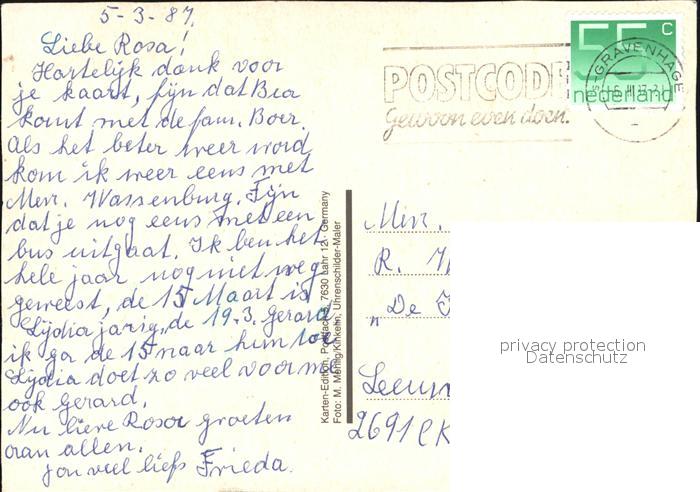 5-3-87.
Liebe Rosa!
Hartelijk dank voor
je kaart, fijn dat Bea
komt met de fam. Boer.
Als het beter weer word
kom ik weer eens met
Mevr. Wassenburg. Fijn
dat je nog eens met een
bus uitgaat. Ik ben het
hele jaar nog niet weg
geweest, de 15 Maart is
Lydia jarig, de 19-3. Gerard
ik ga de 15 naar hun toe
Lydia doet zo veel voor me
ook Gerard.
Nu lieve Rosa groeten
aan allen.
veel liefs Frieda.
Karten-Edition, 7630 Lahr 12 · Germany
Foto: M. Uhrenschilder-Maler
POSTCODE
gewoon even doen.
55 c
nederland
'S-GRAVENHAGE
Mevr.
R.
"De
2691 CK
privacy protection
Datenschutz